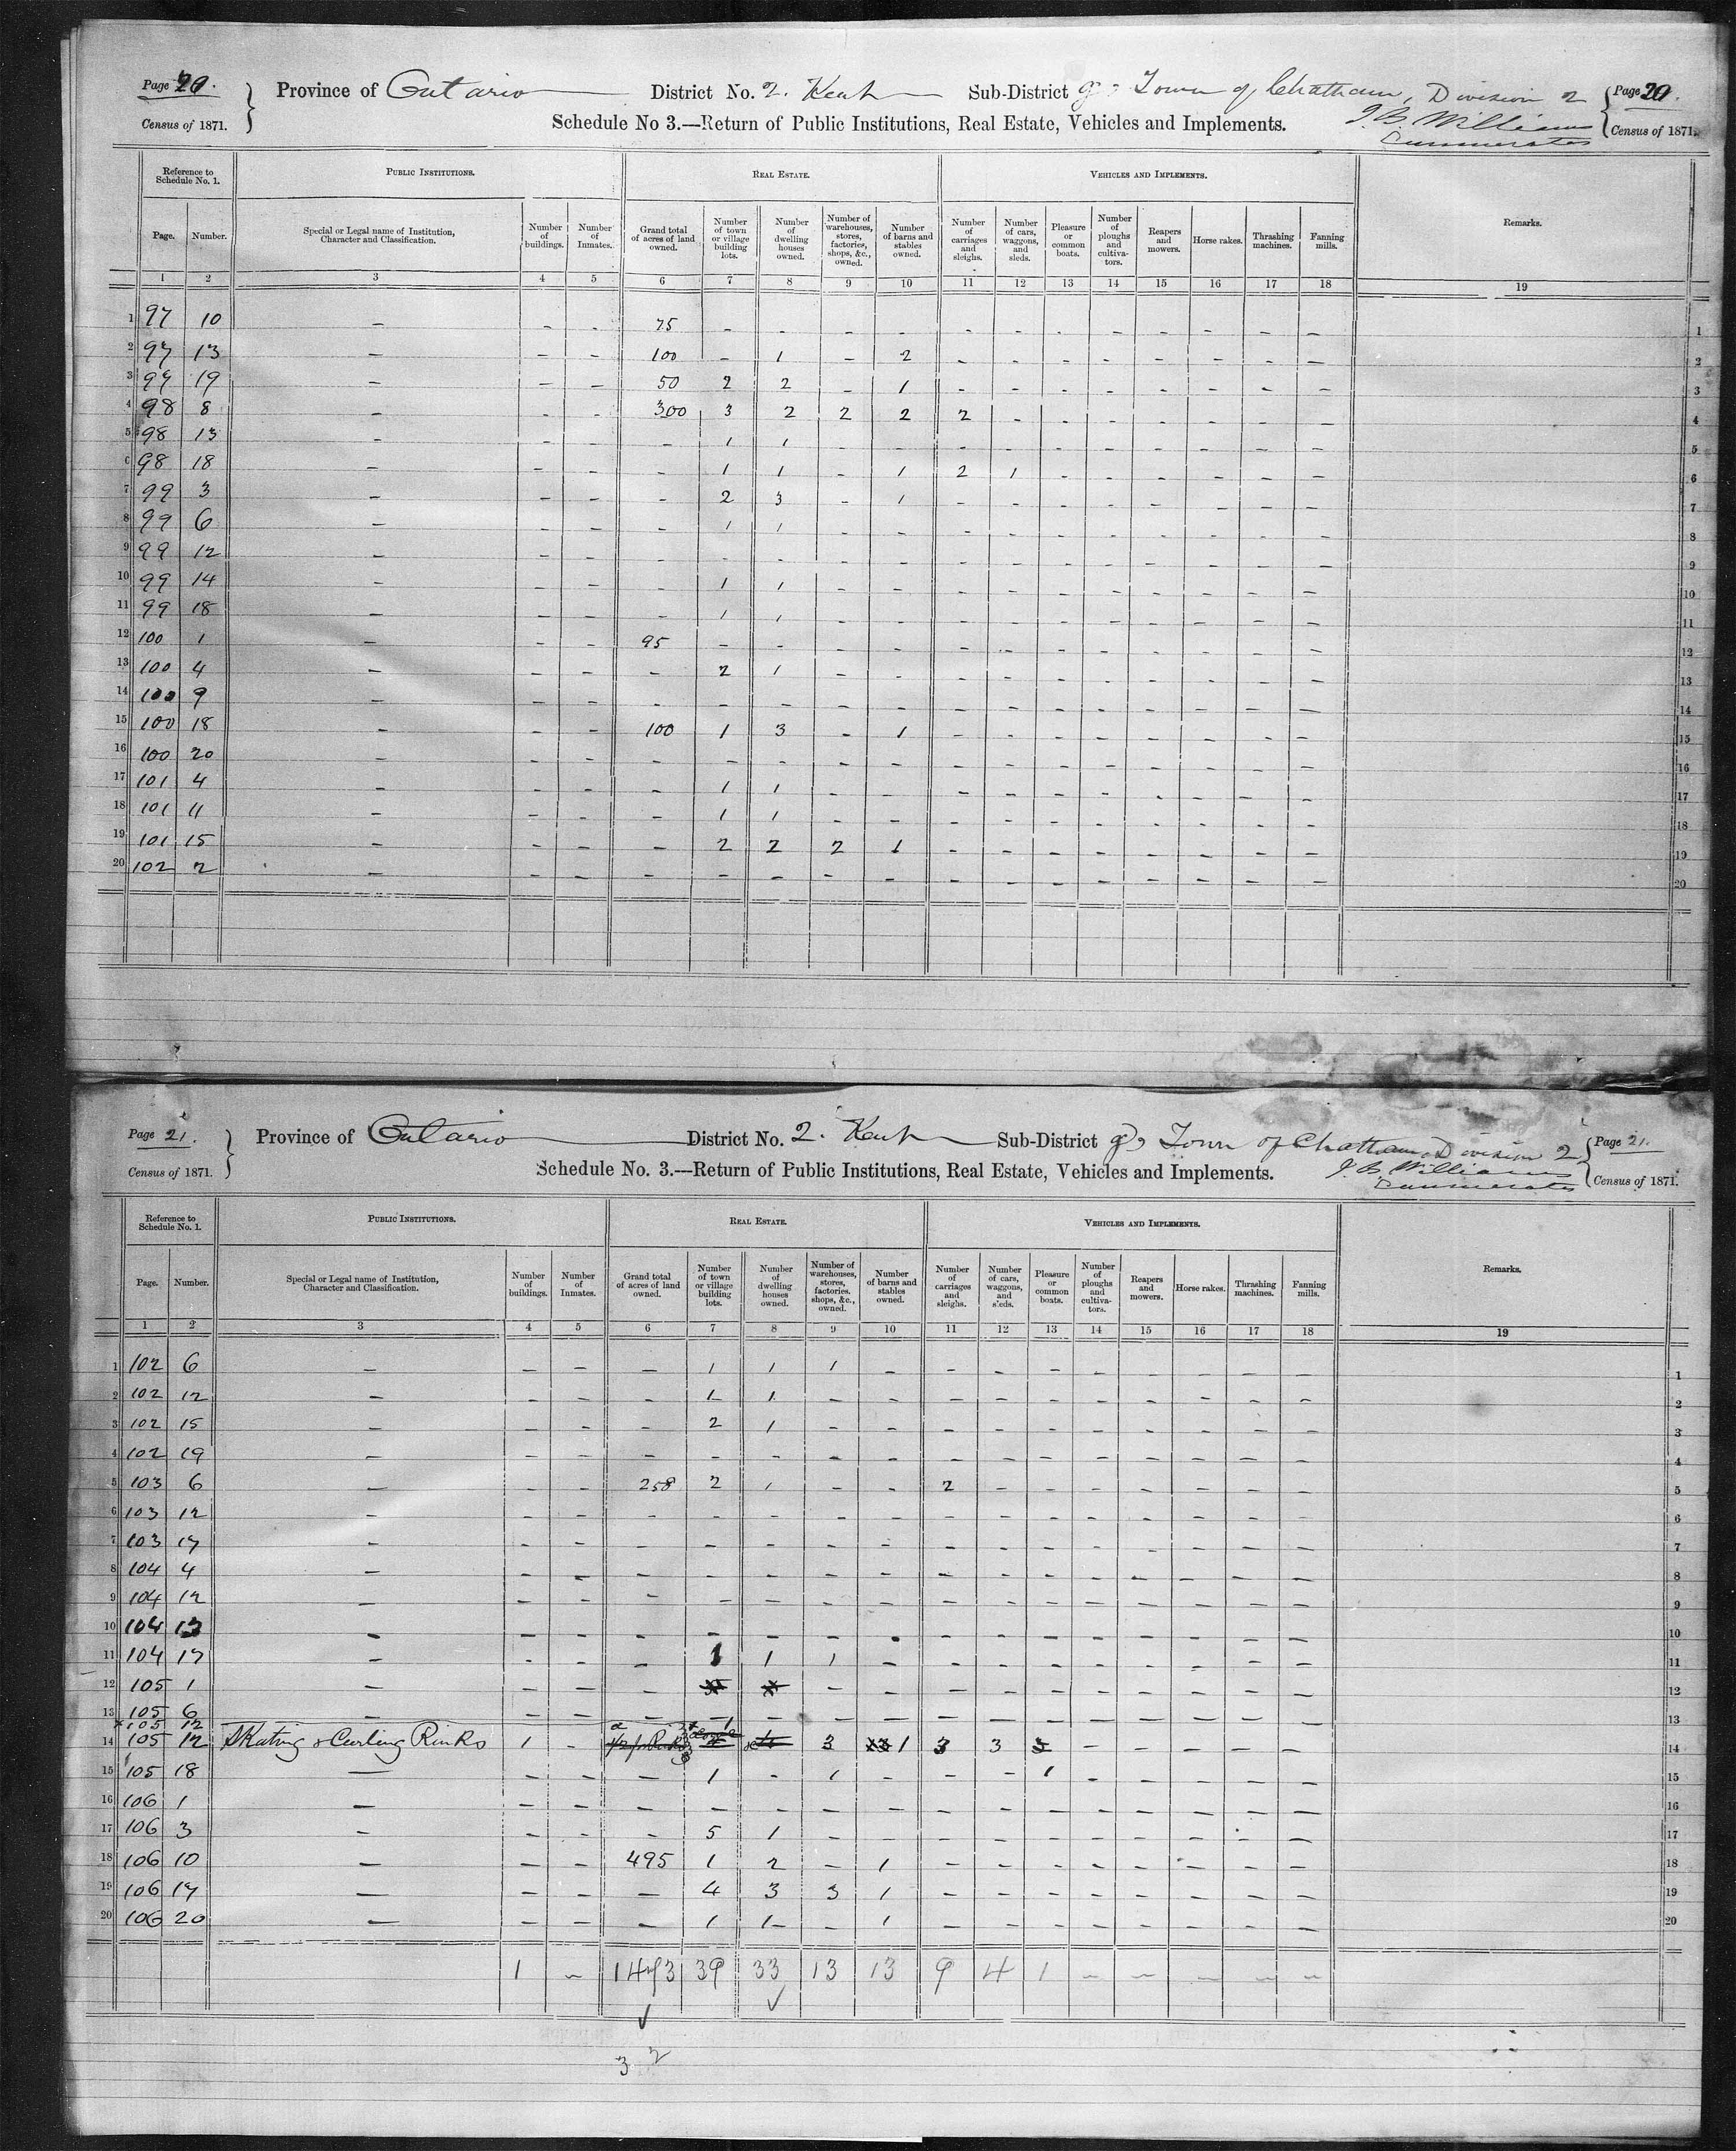 Page 20.
Census of 1871.
Province of Ontario District No. 2. Kent Sub-District g, Town of Chatham, Division 2
Schedule No 3.—Return of Public Institutions, Real Estate, Vehicles and Implements.
J. B. Williams
Enumerator
Page 20.
Census of 1871.
Reference to Schedule No. 1. PUBLIC INSTITUTIONS. REAL ESTATE. VEHICLES AND IMPLEMENTS. Remarks.
Page. Number. Special or Legal name of Institution, Character and Classification. Number of buildings. Number of Inmates. Grand total of acres of land owned. Number of town or village building lots. Number of dwelling houses owned. Number of warehouses, stores, factories, shops, &c., owned. Number of barns and stables owned. Number of carriages and sleighs. Number of cars, waggons, and sleds. Pleasure or common boats. Number of ploughs and cultivators. Reapers and mowers. Horse rakes. Thrashing machines. Fanning mills.
1 2 3 4 5 6 7 8 9 10 11 12 13 14 15 16 17 18 19
1 97 10 - - - 75 - - - - - - - - - - - - 1
2 97 13 - - - 100 - 1 - 2 - - - - - - - - 2
3 97 19 - - - 50 2 2 - 1 - - - - - - - - 3
4 98 8 - - - 300 3 2 2 2 2 - - - - - - - 4
5 98 13 - - - - 1 1 - - - - - - - - - - 5
6 98 18 - - - - 1 1 - 1 2 1 - - - - - - 6
7 99 3 - - - - 2 3 - 1 - - - - - - - - 7
8 99 6 - - - - 1 1 - - - - - - - - - - 8
9 99 12 - - - - - - - - - - - - - - - - 9
10 99 14 - - - - 1 1 - - - - - - - - - - 10
11 99 18 - - - - 1 1 - - - - - - - - - - 11
12 100 1 - - - 95 - - - - - - - - - - - - 12
13 100 4 - - - - 2 1 - - - - - - - - - - 13
14 100 9 - - - - - - - - - - - - - - - - 14
15 100 18 - - - 100 1 3 - 1 - - - - - - - - 15
16 100 20 - - - - - - - - - - - - - - - - 16
17 101 4 - - - - 1 1 - - - - - - - - - - 17
18 101 11 - - - - 1 1 - - - - - - - - - - 18
19 101 15 - - - - 2 2 2 1 - - - - - - - - 19
20 102 2 - - - - - - - - - - - - - - - - 20
Page 21.
Census of 1871.
Province of Ontario District No. 2. Kent Sub-District g, Town of Chatham, Division 2
Schedule No. 3.—Return of Public Institutions, Real Estate, Vehicles and Implements.
J. B. Williams
Enumerator
Page 21.
Census of 1871.
Reference to Schedule No. 1. PUBLIC INSTITUTIONS. REAL ESTATE. VEHICLES AND IMPLEMENTS. Remarks.
Page. Number. Special or Legal name of Institution, Character and Classification. Number of buildings. Number of Inmates. Grand total of acres of land owned. Number of town or village building lots. Number of dwelling houses owned. Number of warehouses, stores, factories, shops, &c., owned. Number of barns and stables owned. Number of carriages and sleighs. Number of cars, waggons, and sleds. Pleasure or common boats. Number of ploughs and cultivators. Reapers and mowers. Horse rakes. Thrashing machines. Fanning mills.
1 2 3 4 5 6 7 8 9 10 11 12 13 14 15 16 17 18 19
1 102 6 - - - - 1 1 1 - - - - - - - - - 1
2 102 12 - - - - 1 1 - - - - - - - - - - 2
3 102 15 - - - - 2 1 - - - - - - - - - - 3
4 102 19 - - - - - - - - - - - - - - - - 4
5 103 6 - - - 258 2 1 - - 2 - - - - - - - 5
6 103 12 - - - - - - - - - - - - - - - - 6
7 103 17 - - - - - - - - - - - - - - - - 7
8 104 4 - - - - - - - - - - - - - - - - 8
9 104 12 - - - - - - - - - - - - - - - - 9
10 104 13 - - - - - - - - - - - - - - - - 10
11 104 17 - - - - 1 1 1 - - - - - - - - - 11
12 105 1 - - - - - - - - - - - - - - 12
13 105 6 - - - - - - - - - - - - - - - - 13
x 105 12
14 105 12 Skating & Curling Rinks 1 - 3 1 3 3 - - - - - 14
15 105 18 - - - - 1 - 1 - - - 1 - - - - - 15
16 106 1 - - - - - - - - - - - - - - - - 16
17 106 3 - - - - 5 1 - - - - - - - - - - 17
18 106 10 - - - 495 1 2 - 1 - - - - - - - - 18
19 106 17 - - - - 4 3 3 1 - - - - - - - - 19
20 106 20 - - - - 1 1 - 1 - - - - - - - - 20
1 - 1473 39 33 13 13 9 4 1 - - - - -
✓ ✓
3 2